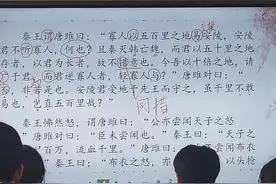 秦王谓唐雎曰：“寡人以五百里之地易安陵，安陵
君不听寡人，何也？且秦灭韩亡魏，而君以五十里之地
存者，以君为长者，故不错意也。今吾以十倍之地，请
而君逆寡人者，轻寡人与？”唐雎对曰：“
非若是也。安陵君受地于先王而守之，虽千里不敢
易也，岂直五百里哉？”
同措
秦王怫然怒，谓唐雎曰：“公亦尝闻天子之怒
唐雎对曰：“臣未尝闻也。”秦王曰：“天子之
百万，流血千里。”唐雎曰：“
秦王曰：“布衣之怒，亦
以头抢